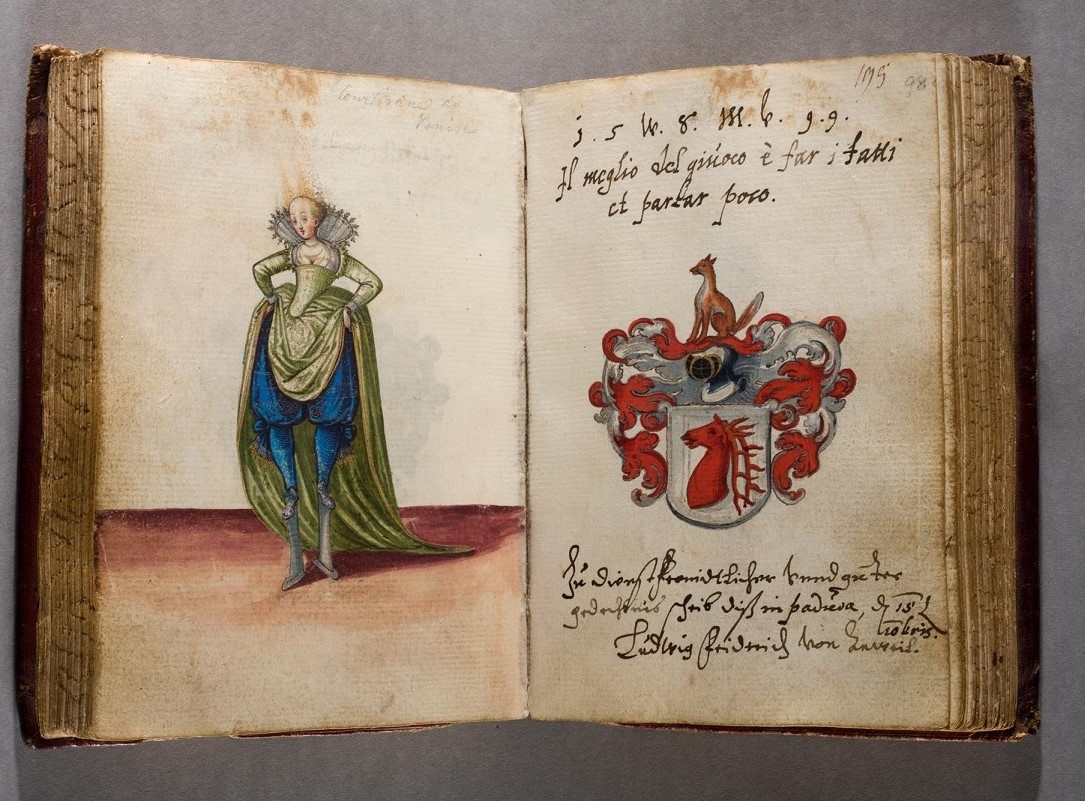 Courtisane de
Venise
195 98
1 . 5 W. 8. M. V. 9.9.
Il meglio del giuoco è far i fatti
et parlar poco.
Zu dienstfreundtlicher vnnd gutter
gedechtnis schrib diß in padua, 15
10bris.
Ludwig Friderich von